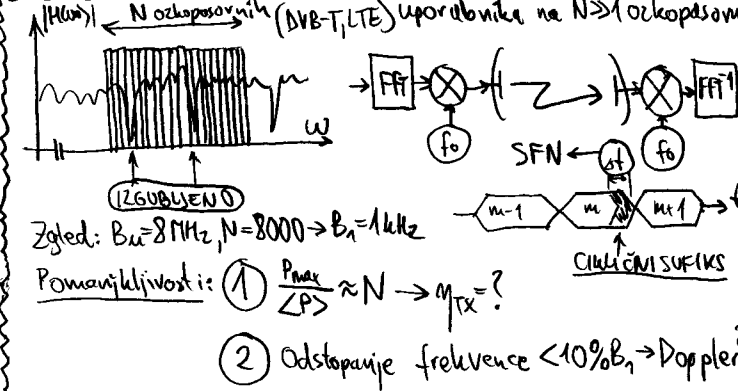 |H(ω)| N ozkopasovnih (DVB-T, LTE) uporabnika na N≫1 ozkopasovn
FFT FFT⁻¹
ω f₀ f₀
SFN Δt
IZGUBLJENO m-1 m m+1 t
Zgled: Bₘ=8MHz, N=8000→B₁=1kHz
CIKLIČNI SUFIKS
Pomanjkljivosti: ① Pmax/<P> ≈ N → ηTX=?
② Odstopanje frekvence <10%B₁→Doppler